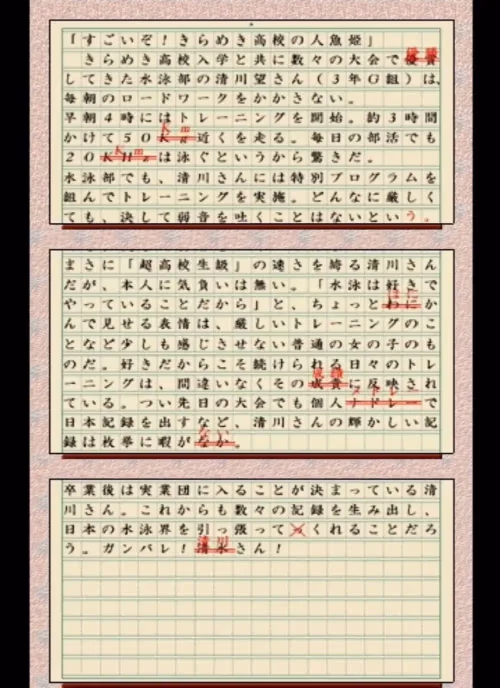 「すごいぞ！きらめき高校の人魚姫」
きらめき高校入学と共に数々の大会で優賞
優勝
してきた水泳部の清川望さん（３年Ｇ組）は、
毎朝のロードワークをかかさない。
早朝４時にはトレーニングを開始。約３時間
かけて５０Ｋｇ近くを走る。毎日の部活でも
Ｋｍ
２０ＫＨｚは泳ぐというから驚きだ。
Ｋｍ
水泳部でも、清川さんには特別プログラムを
組んでトレーニングを実施。どんなに厳しく
ても、決して弱音を吐くことはないという。
まさに「超高校生級」の速さを誇る清川さん
だが、本人に気負いは無い。「水泳は好きで
やっていることだから」と、ちょっとか
んで見せる表情は、厳しいトレーニングのこ
となど少しも感じさせない普通の女の子のも
のだ。好きだからこそ続けられる日々のトレ
ーニングは、間違いなくその成責に反映され
成績
ている。つい先日の大会でも個人ナドレーで
メドレー
日本記録を出すなど、清川さんの輝かしい記
録は枚挙に暇がなか。
ない
卒業後は実業団に入ることが決まっている清
川さん。これからも数々の記録を生み出し、
日本の水泳界を引っ張ってくれることだろ
う。ガンバレ！清水さん！
清川